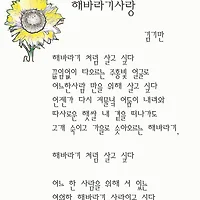 해바라기사랑
김기만
해바라기 처럼 살고 싶다
끊임없이 타오르는 조홍빛 얼굴로
어느한사람 만을 위해 살고 싶다
언젠가 다시 저물녘 어둠이 내려와
따사로운 햇쌀 내 곁을 떠나가도
고개 숙이고 가을로 솟아오르는 해바라기.
해바라기 처럼 살고 싶다
어느 한 사람을 위해 서 있는
여여한 해바라기 사랑이고 싶다